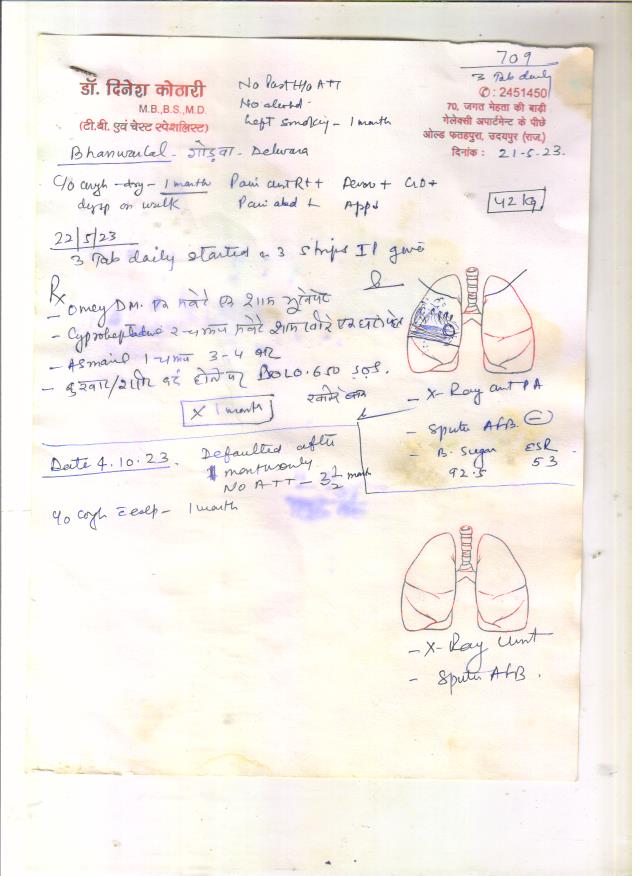 709
3 Tab daily
डॉ. दिनेश कोठारी
M.B.,B.S.,M.D.
(टी.बी. एवं चेस्ट स्पेशलिस्ट)
No Past H/o ATT
No alcohol.
Left smoking - 1 month
✆ : 2451450
70, जगत मेहता की बाड़ी
गेलेक्सी अपार्टमेन्ट के पीछे
ओल्ड फतहपुरा, उदयपुर (राज.)
दिनांक : 21-5-23.
Bhanwarlal - गोड़वा - Delwara
C/o cough - dry - 1 month
dysp on walk
Pain chest R++
Pain abd
42 kg
22/5/23
3 Tab daily started 3 strips given
Rx
- Omez DM.
- Cyproheptadine
- Asmanil 1 चम्मच 3-4 बार
- बुखार/शरीर दर्द होने पर DOLO.650 S.O.S.
X 1 month
- X-Ray chest PA
- Sputum AFB. (-)
- B. Sugar 92.5
ESR 53
Date 4.10.23.
Defaulted after
1 month only
No ATT - 3 1/2 month
c/o cough - 1 month
- X-Ray chest
- Sputum AFB.